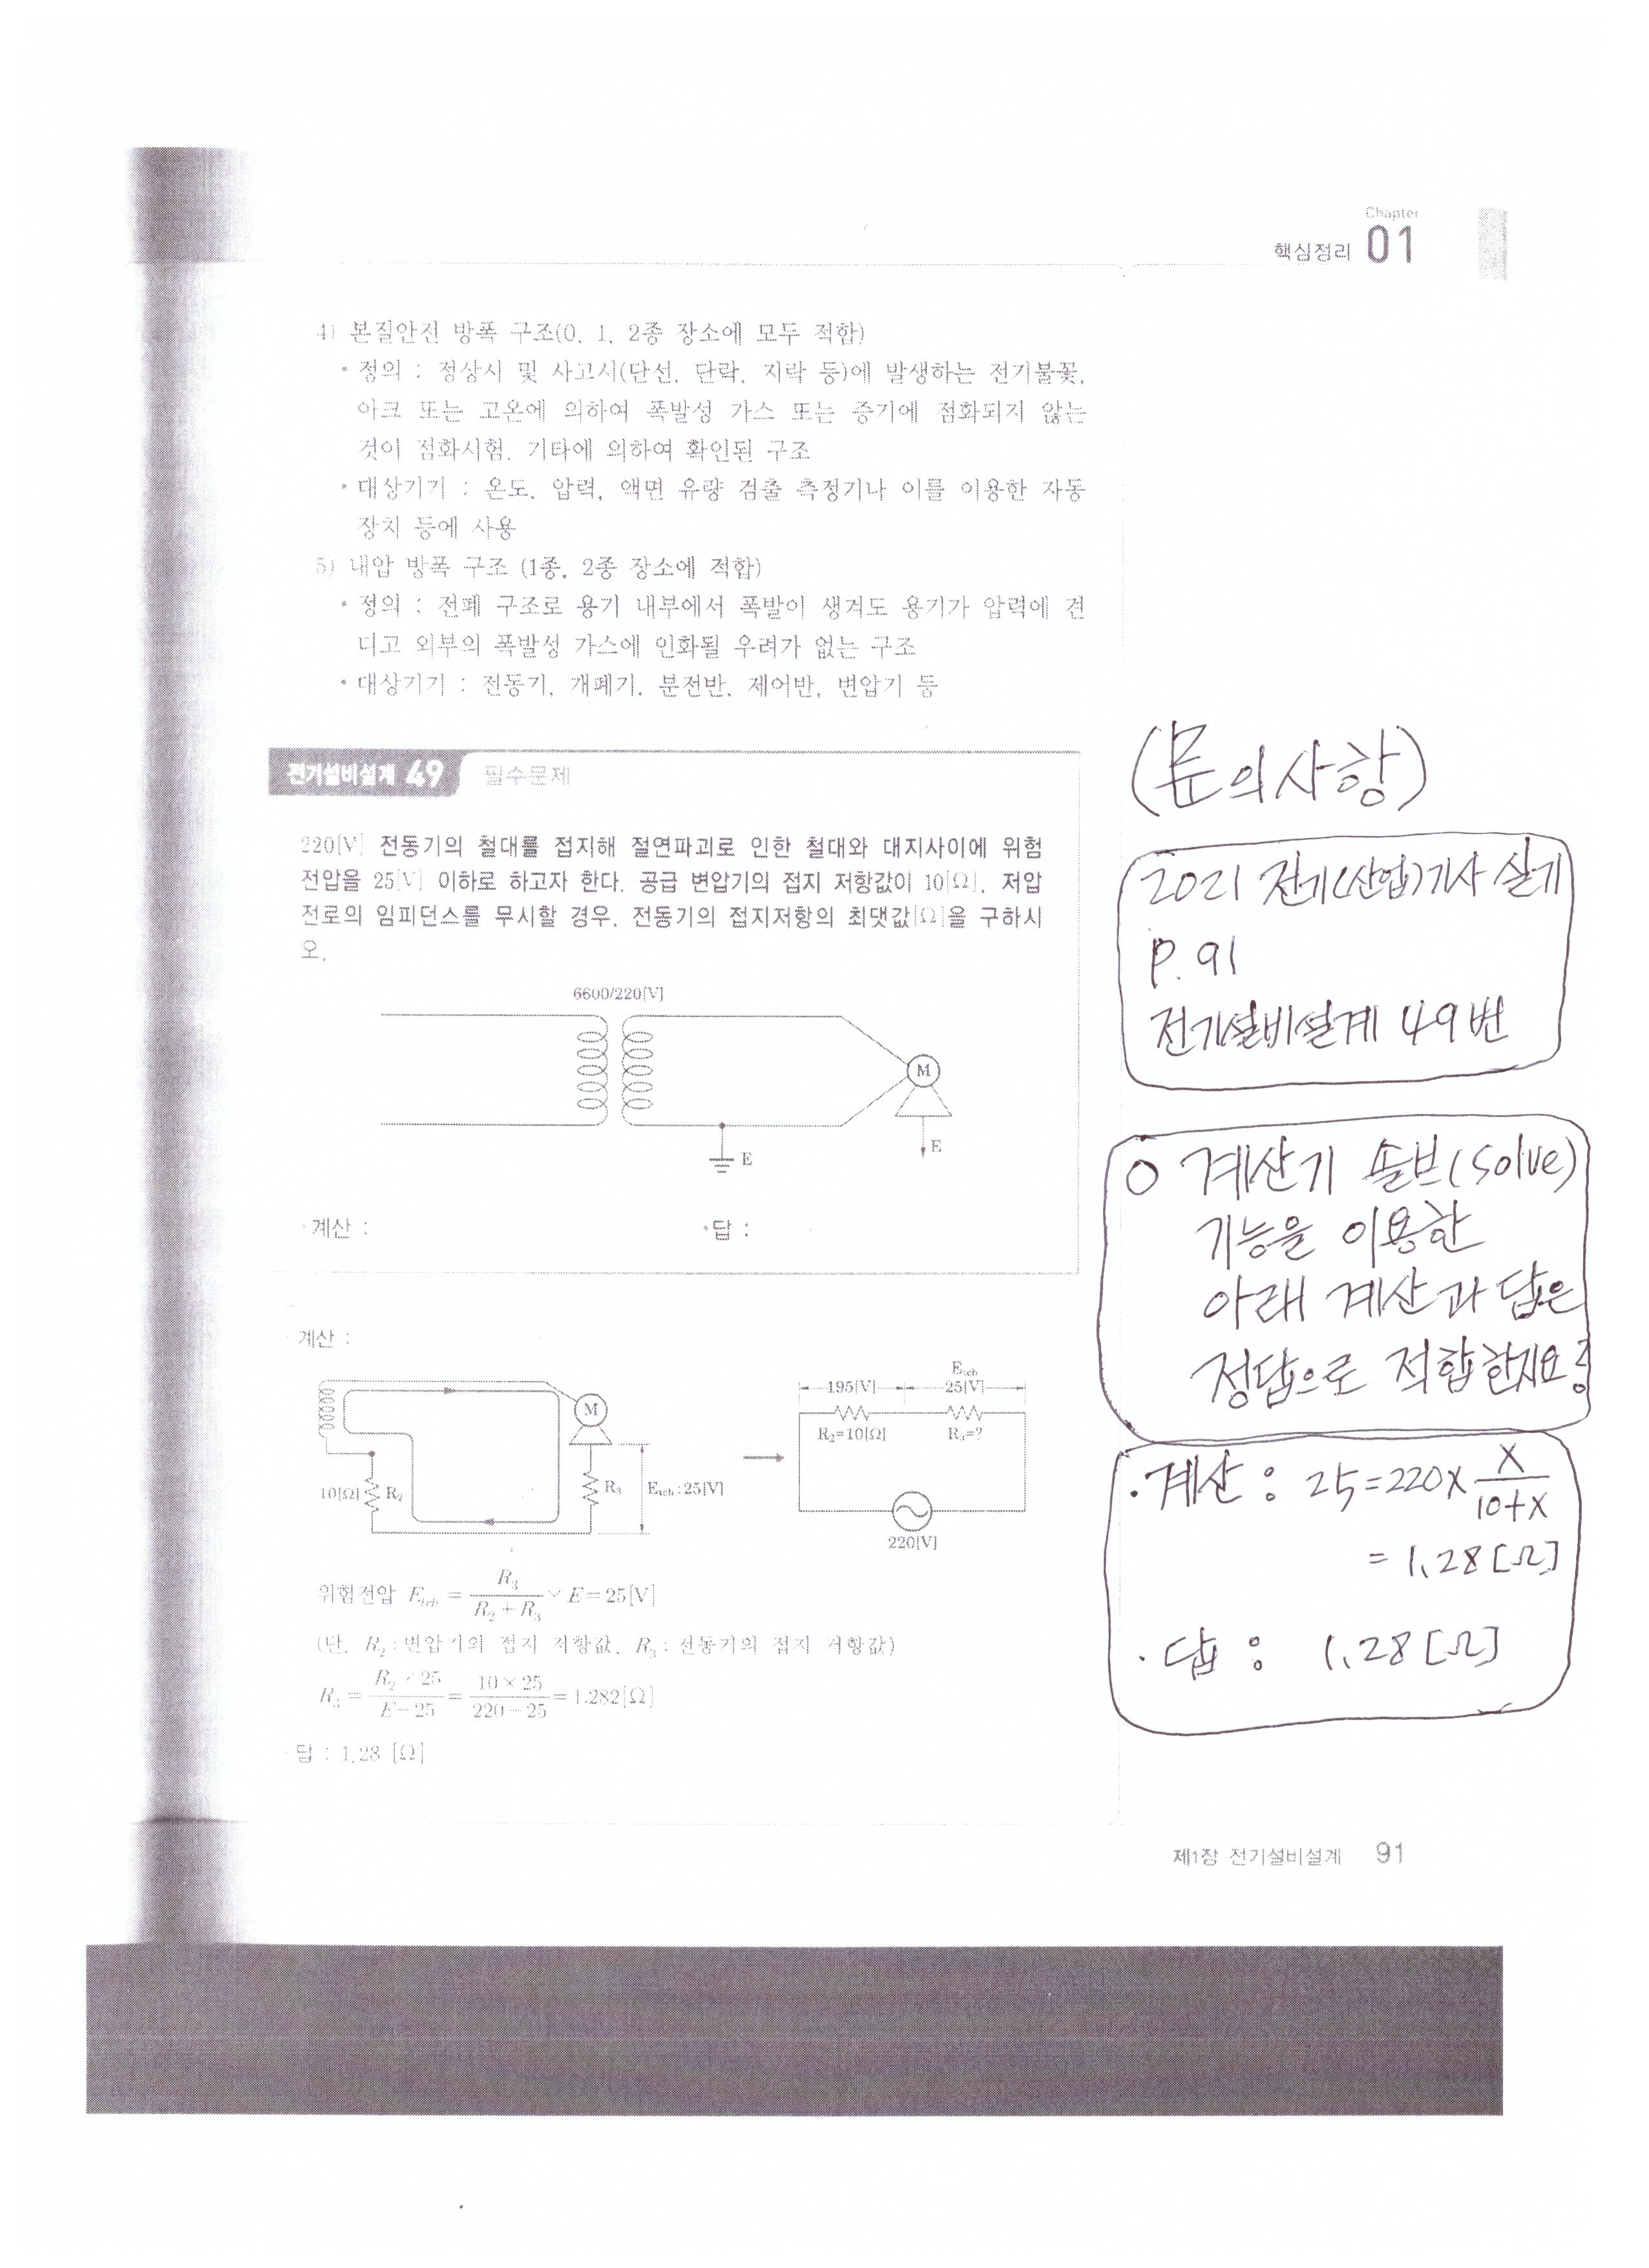 Chapter
핵심정리 01
4) 본질안전 방폭 구조(0, 1, 2종 장소에 모두 적합)
• 정의 : 정상시 및 사고시(단선, 단락, 지락 등)에 발생하는 전기불꽃,
아크 또는 고온에 의하여 폭발성 가스 또는 증기에 점화되지 않는
것이 점화시험, 기타에 의하여 확인된 구조
• 대상기기 : 온도, 압력, 액면 유량 검출 측정기나 이를 이용한 자동
장치 등에 사용
5) 내압 방폭 구조 (1종, 2종 장소에 적합)
• 정의 : 전폐 구조로 용기 내부에서 폭발이 생겨도 용기가 압력에 견
디고 외부의 폭발성 가스에 인화될 우려가 없는 구조
• 대상기기 : 전동기, 개폐기, 분전반, 제어반, 변압기 등
전기설비설계 49 필수문제
220[V] 전동기의 철대를 접지해 절연파괴로 인한 철대와 대지사이에 위험
전압을 25[V] 이하로 하고자 한다. 공급 변압기의 접지 저항값이 10[Ω], 저압
전로의 임피던스를 무시할 경우, 전동기의 접지저항의 최댓값[Ω]을 구하시
오.
6600/220[V]
M
E
E
• 계산 :
• 답 :
계산 :
M
10[Ω] R₂
R₃ E_tch : 25[V]
E_tch
195[V] 25[V]
R₂=10[Ω] R₃=?
220[V]
위험전압 E_tch = R₃/(R₂+R₃) × E = 25[V]
(단, R₂ : 변압기의 접지 저항값, R₃ : 전동기의 접지 저항값)
R₃ = (R₂×25)/(E−25) = (10×25)/(220−25) = 1.282[Ω]
답 : 1.28 [Ω]
제1장 전기설비설계 91
(문의사항)
2021 전기(산업)기사 실기
P. 91
전기설비설계 49번
○ 계산기 솔브(Solve)
기능을 이용한
아래 계산과 답은
정답으로 적합한지요?
· 계산 : 25=220× X/(10+X)
= 1.28[Ω]
· 답 : 1.28[Ω]